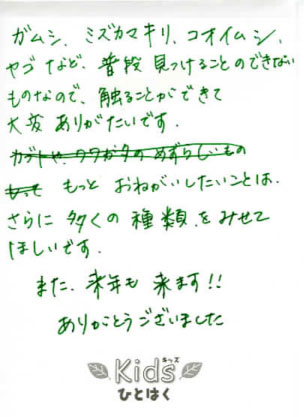 ガムシ、ミズカマキリ、コオイムシ、
ヤゴなど、普段見つけることのできない
ものなので、触ることができて
大変ありがたいです。
カブトや、クワガタのめずらしいもの
もって もっと おねがいしたいことは、
さらに多くの種類をみせて
ほしいです。
また、来年も来ます!!
ありがとうございました
キッズ
Kids
ひとはく